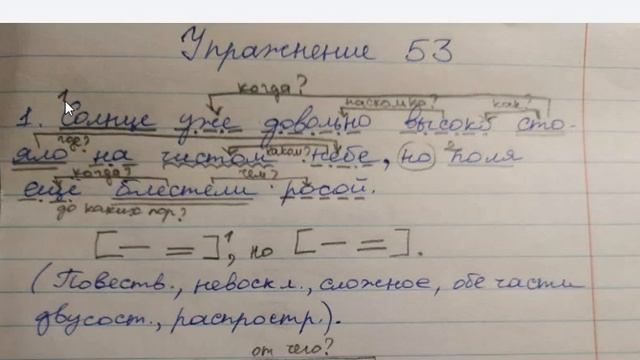 Упражнение 53
когда?
1 насколько? как?
1. Солнце уже довольно высоко сто-
где? каком? 2
яло на чистом небе, но поля
когда? чем?
ещё блестели росой.
до каких пор?
[— =]¹, но [— =].
(Повеств., невоскл., сложное, обе части
двусост., распростр.).
от чего?